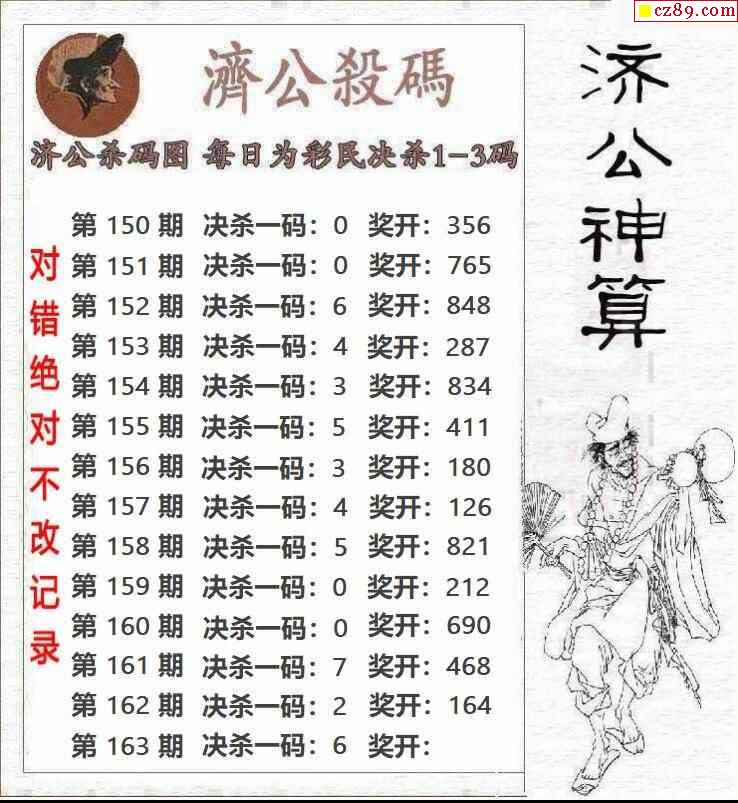 cz89.com
濟公殺碼
济公杀码图 每日为彩民决杀1-3码
第 150 期 决杀一码：0 奖开：356
第 151 期 决杀一码：0 奖开：765
第 152 期 决杀一码：6 奖开：848
第 153 期 决杀一码：4 奖开：287
第 154 期 决杀一码：3 奖开：834
第 155 期 决杀一码：5 奖开：411
第 156 期 决杀一码：3 奖开：180
第 157 期 决杀一码：4 奖开：126
第 158 期 决杀一码：5 奖开：821
第 159 期 决杀一码：0 奖开：212
第 160 期 决杀一码：0 奖开：690
第 161 期 决杀一码：7 奖开：468
第 162 期 决杀一码：2 奖开：164
第 163 期 决杀一码：6 奖开：
对错绝对不改记录
济公神算